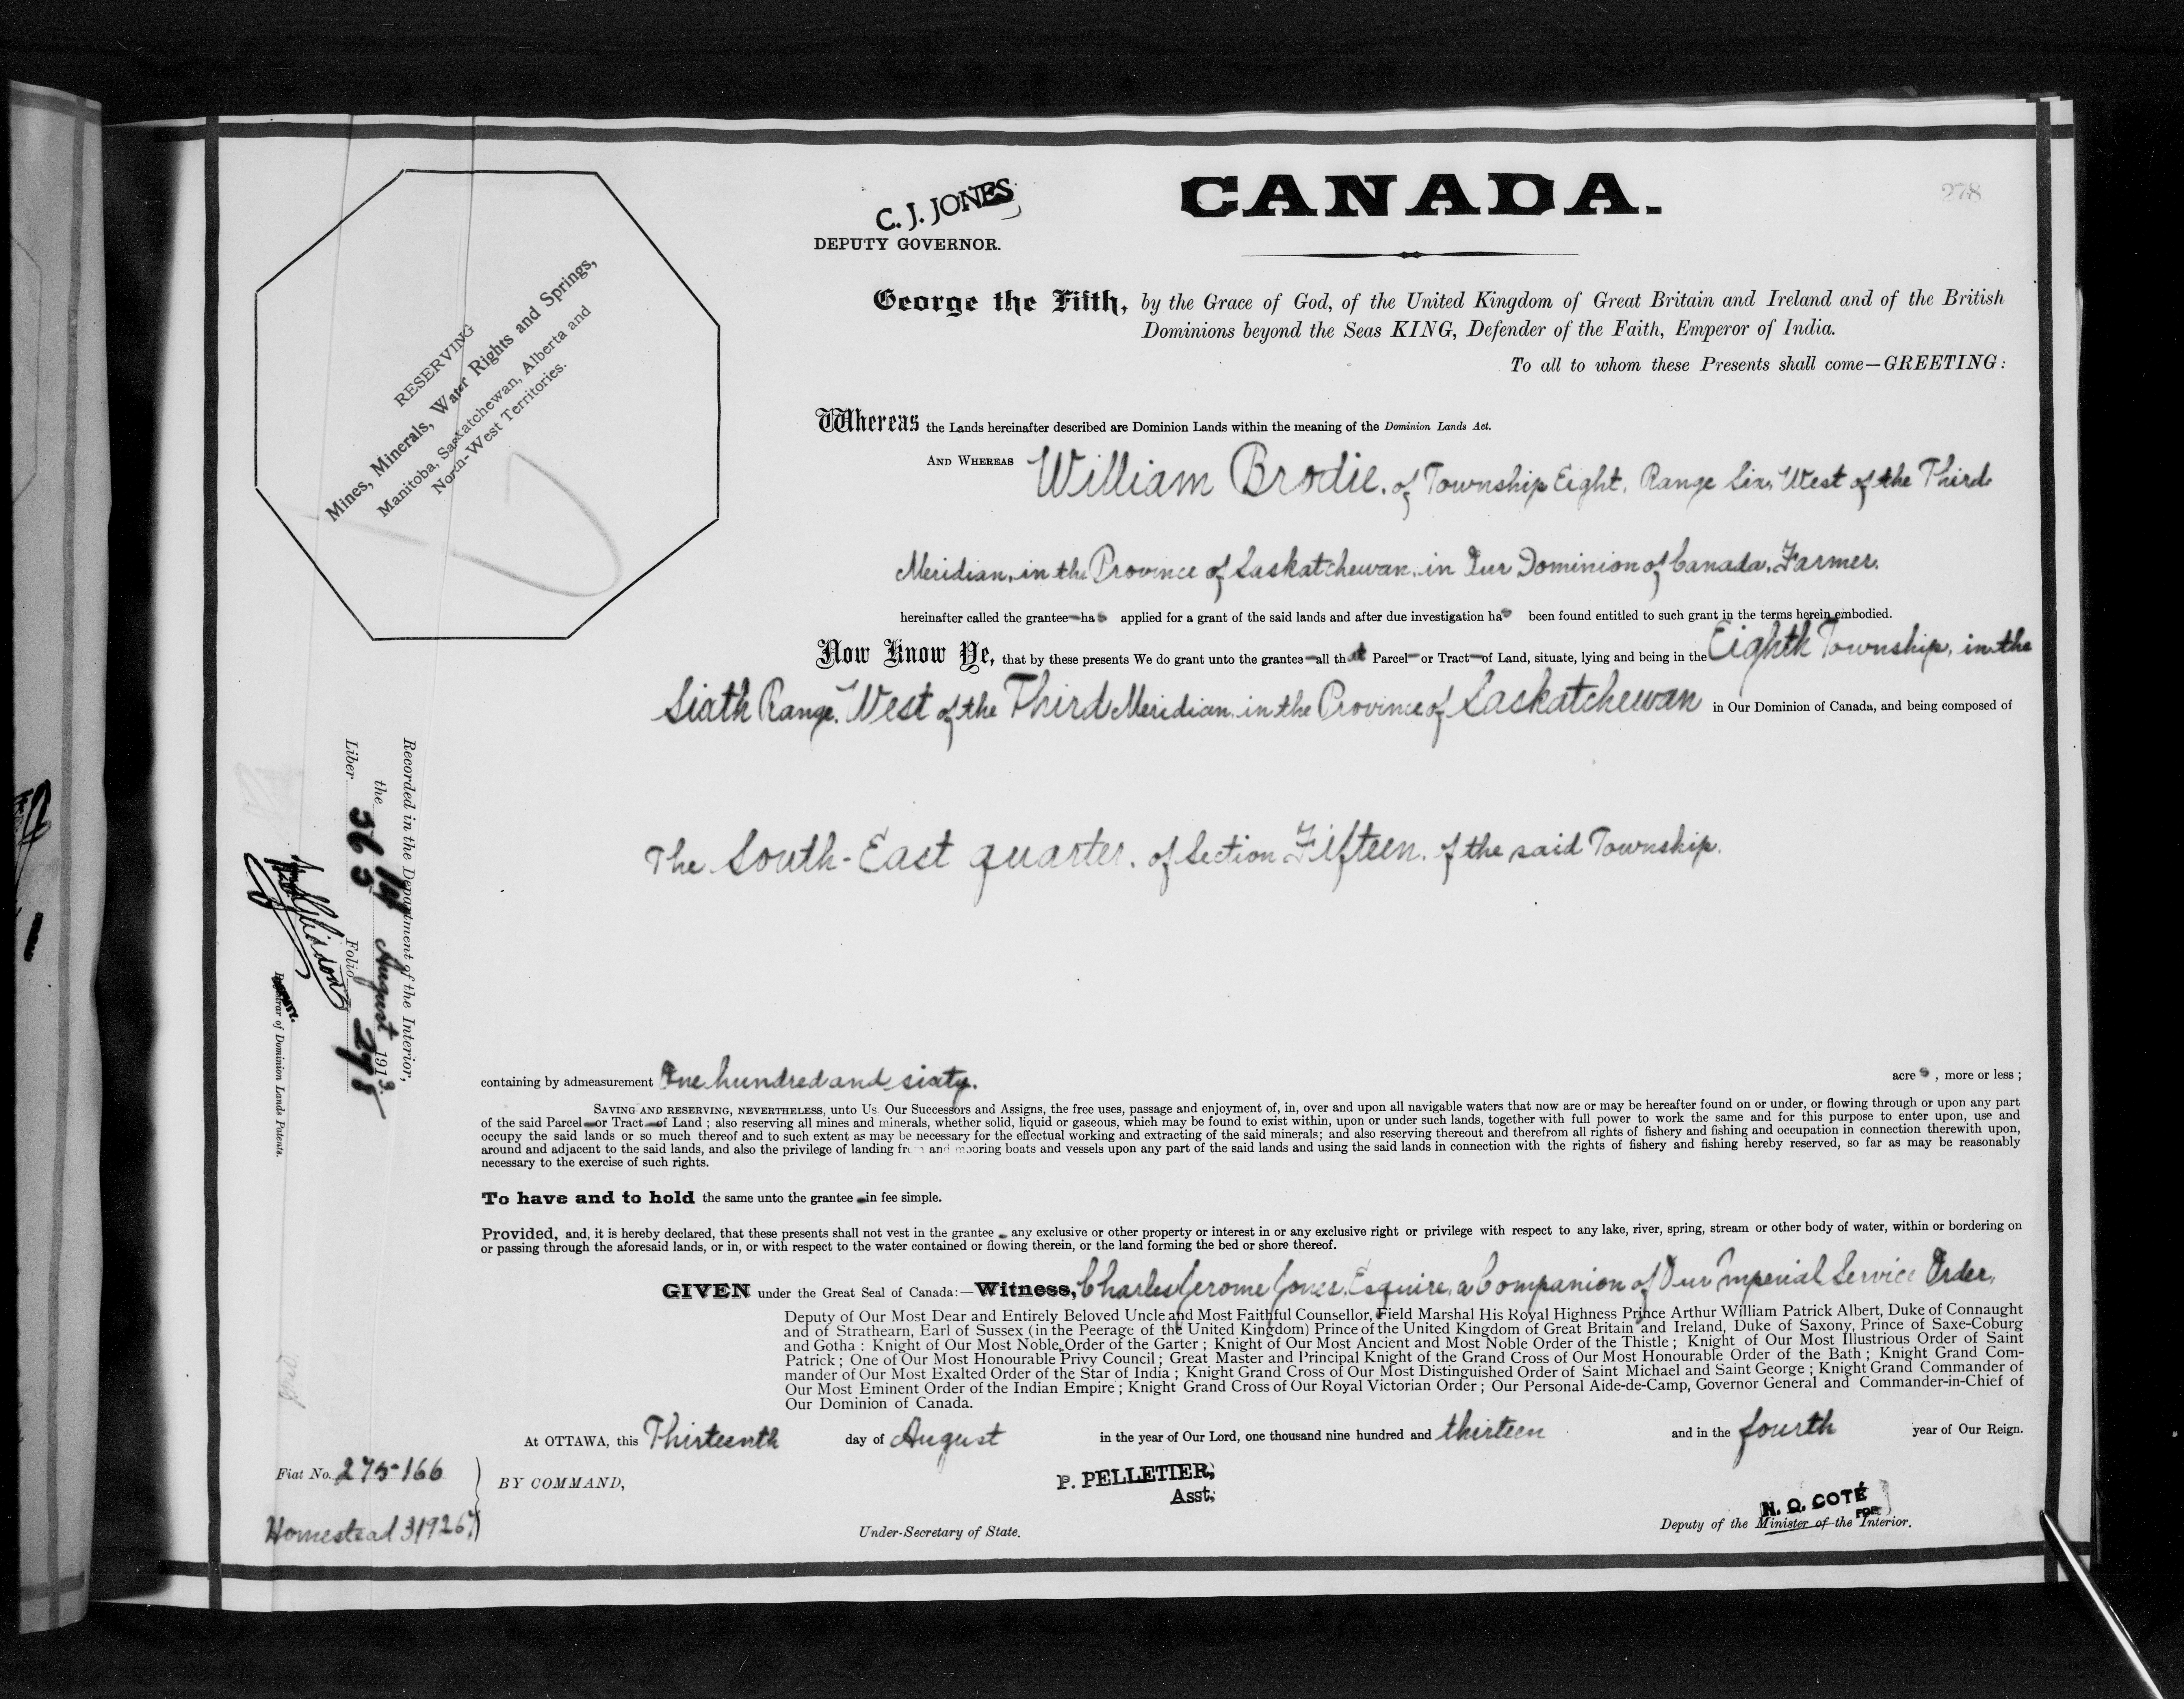 CANADA.
278
C. J. JONES
DEPUTY GOVERNOR.
RESERVING
Mines, Minerals, Water Rights and Springs,
Manitoba, Saskatchewan, Alberta and
North-West Territories.
George the Fifth, by the Grace of God, of the United Kingdom of Great Britain and Ireland and of the British
Dominions beyond the Seas KING, Defender of the Faith, Emperor of India.
To all to whom these Presents shall come—GREETING:
Whereas the Lands hereinafter described are Dominion Lands within the meaning of the Dominion Lands Act.
AND WHEREAS William Brodie, of Township Eight, Range Six, West of the Third
Meridian, in the Province of Saskatchewan, in Our Dominion of Canada, Farmer.
hereinafter called the grantee—has applied for a grant of the said lands and after due investigation has been found entitled to such grant in the terms herein embodied.
Now Know Ye, that by these presents We do grant unto the grantee—all that Parcel—or Tract—of Land, situate, lying and being in the Eighth Township, in the
Sixth Range, West of the Third Meridian, in the Province of Saskatchewan in Our Dominion of Canada, and being composed of
The South-East quarter, of Section Fifteen, of the said Township.
Recorded in the Department of the Interior,
the 19 August 1913.
Liber 363 Folio 278
Registrar of Dominion Lands Patents.
containing by admeasurement One hundred and sixty. acres, more or less;
SAVING AND RESERVING, NEVERTHELESS, unto Us Our Successors and Assigns, the free uses, passage and enjoyment of, in, over and upon all navigable waters that now are or may be hereafter found on or under, or flowing through or upon any part
of the said Parcel—or Tract—of Land; also reserving all mines and minerals, whether solid, liquid or gaseous, which may be found to exist within, upon or under such lands, together with full power to work the same and for this purpose to enter upon, use and
occupy the said lands or so much thereof and to such extent as may be necessary for the effectual working and extracting of the said minerals; and also reserving thereout and therefrom all rights of fishery and fishing and occupation in connection therewith upon,
around and adjacent to the said lands, and also the privilege of landing from and mooring boats and vessels upon any part of the said lands and using the said lands in connection with the rights of fishery and fishing hereby reserved, so far as may be reasonably
necessary to the exercise of such rights.
To have and to hold the same unto the grantee—in fee simple.
Provided, and, it is hereby declared, that these presents shall not vest in the grantee—any exclusive or other property or interest in or any exclusive right or privilege with respect to any lake, river, spring, stream or other body of water, within or bordering on
or passing through the aforesaid lands, or in, or with respect to the water contained or flowing therein, or the land forming the bed or shore thereof.
GIVEN under the Great Seal of Canada:—Witness, Charles Jerome Jones, Esquire, a Companion of Our Imperial Service Order,
Deputy of Our Most Dear and Entirely Beloved Uncle and Most Faithful Counsellor, Field Marshal His Royal Highness Prince Arthur William Patrick Albert, Duke of Connaught
and of Strathearn, Earl of Sussex (in the Peerage of the United Kingdom) Prince of the United Kingdom of Great Britain and Ireland, Duke of Saxony, Prince of Saxe-Coburg
and Gotha: Knight of Our Most Noble Order of the Garter; Knight of Our Most Ancient and Most Noble Order of the Thistle; Knight of Our Most Illustrious Order of Saint
Patrick; One of Our Most Honourable Privy Council; Great Master and Principal Knight of the Grand Cross of Our Most Honourable Order of the Bath; Knight Grand Com-
mander of Our Most Exalted Order of the Star of India; Knight Grand Cross of Our Most Distinguished Order of Saint Michael and Saint George; Knight Grand Commander of
Our Most Eminent Order of the Indian Empire; Knight Grand Cross of Our Royal Victorian Order; Our Personal Aide-de-Camp, Governor General and Commander-in-Chief of
Our Dominion of Canada.
At OTTAWA, this Thirteenth day of August in the year of Our Lord, one thousand nine hundred and thirteen and in the fourth year of Our Reign.
Fiat No. 275-166
Homestead 319267
BY COMMAND,
P. PELLETIER,
Asst.
Under-Secretary of State.
N. O. COTÉ
FOR
Deputy of the Minister of the Interior.